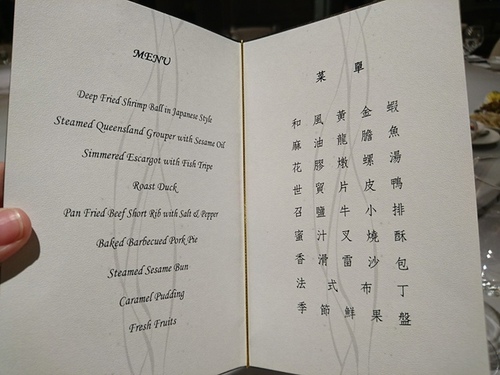 MENU
Deep Fried Shrimp Ball in Japanese Style
Steamed Queensland Grouper with Sesame Oil
Simmered Escargot with Fish Tripe
Roast Duck
Pan Fried Beef Short Rib with Salt & Pepper
Baked Barbecued Pork Pie
Steamed Sesame Bun
Caramel Pudding
Fresh Fruits
菜單
和風黃金蝦
麻油龍膽魚
花膠燉螺湯
世貿片皮鴨
召鹽牛小排
蜜汁叉燒酥
香滑雷沙包
法式布丁
季節鮮果盤